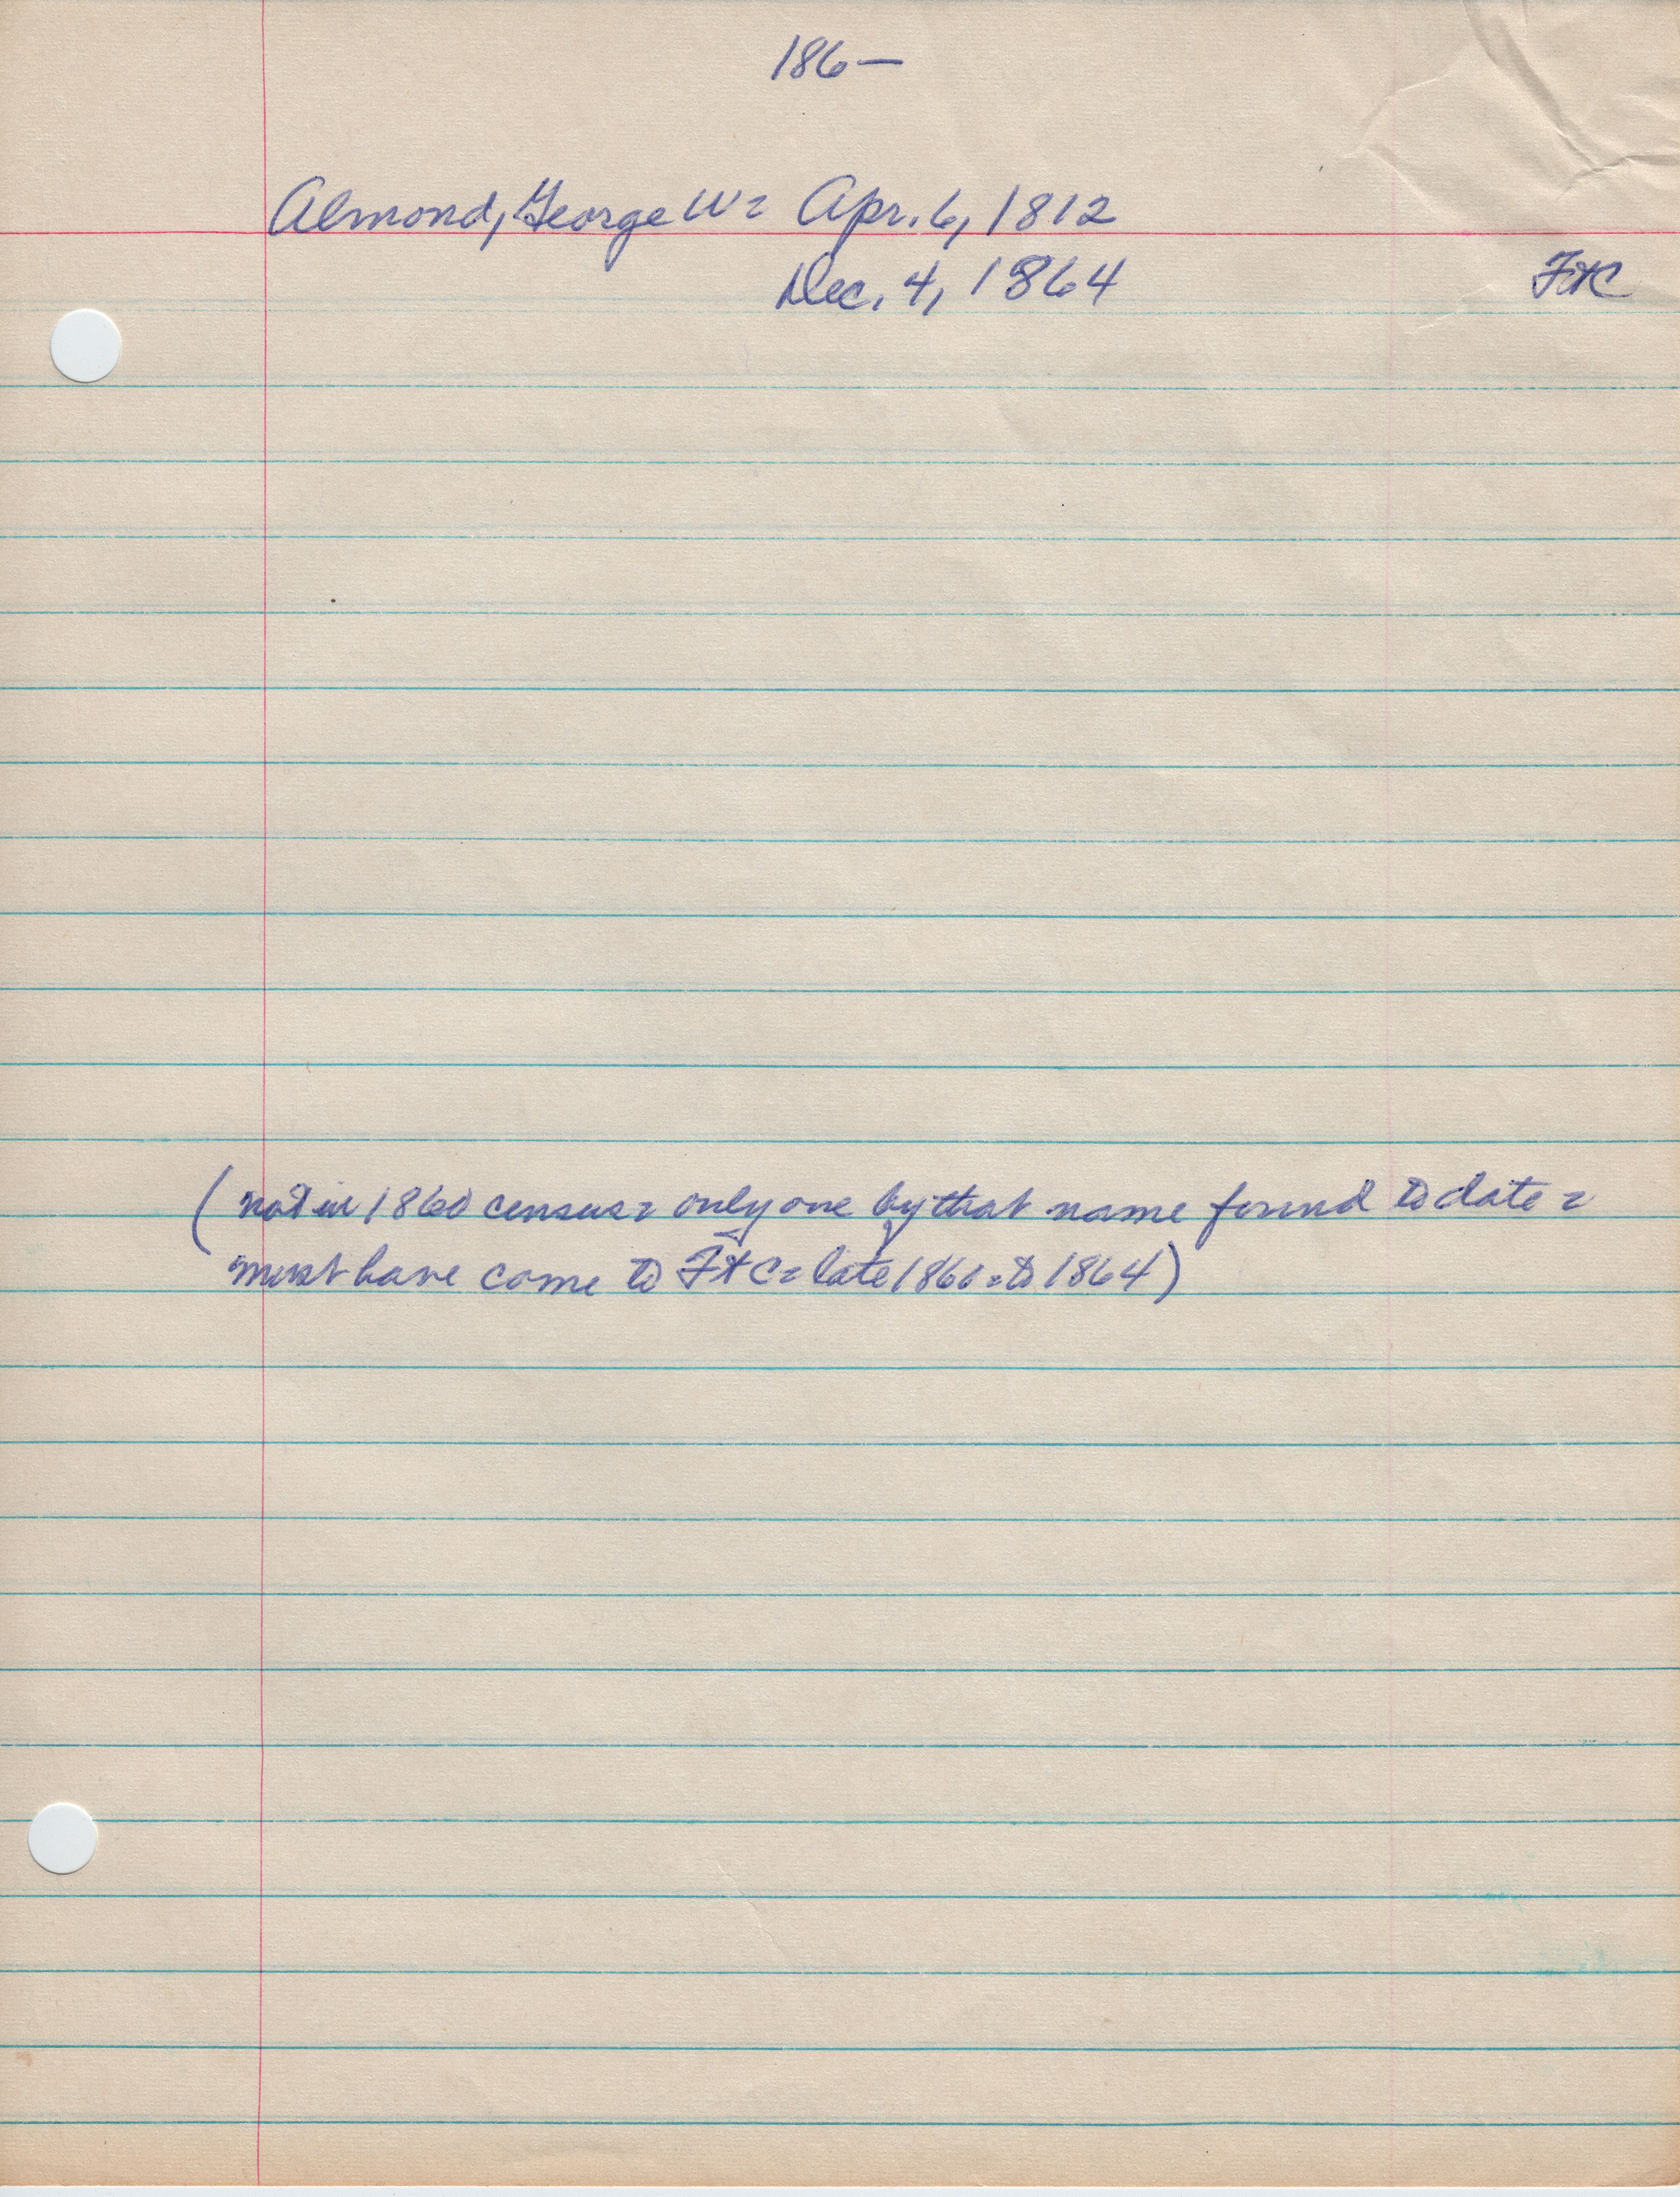 186—
Almond, George W= Apr. 6, 1812
Dec. 4, 1864
FtC
(not in 1860 census= only one by that name found to date=
must have come to Ft C= late 1860=to 1864)